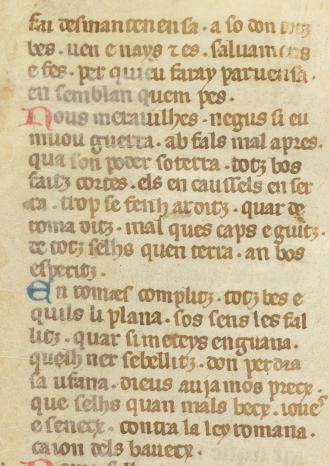 fai desmantenensa · a so don totz
bes · uen e nays ⁊ es · saluamens
e fes · per quieu faray paruensa ·
en semblan quem pes ·
Nous merauilhes · negus si eu
muou guerra · ab fals mal apres ·
qua son poder soterra · totz bos
faitz cortes · els en caussels en ser
ra · trop se fenh arditz · quar de
roma ditz · mal ques caps e guitz ·
de totz selhs quen terra · an bos
esperitz ·
En romaes complitz · totz bes e
quils li plana · sos sens les fal
litz · quar si meteys enguana ·
quelh ner sebellitz · don perdra
sa ufana · dieus auia mos precx ·
que selhs quan mals becx · ioues
e senecx · contra la ley romana ·
caion dels bauecx ·